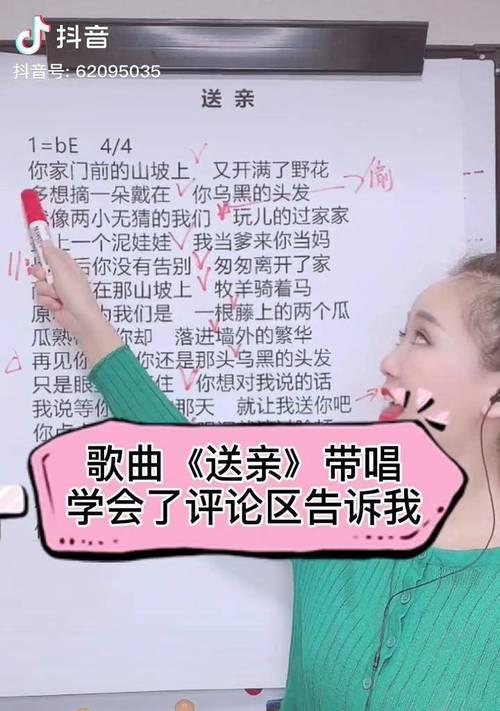 抖音
抖音号: 62095035
送亲
1=bE 4/4
你家门前的山坡上 又开满了野花
多想摘一朵戴在 你乌黑的头发
偷
像两小无猜的我们 玩儿的过家家
上一个泥娃娃 我当爹来你当妈
后你没有告别 匆匆离开了家
在那山坡上 牧羊骑着马
为我们是 一根藤上的两个瓜
瓜熟 你却 落进墙外的繁华
再见你 你还是那头乌黑的头发
只是眼 住 你想对我说的话
我说等你 那天 就让我送你吧
歌曲《送亲》带唱
学会了评论区告诉我